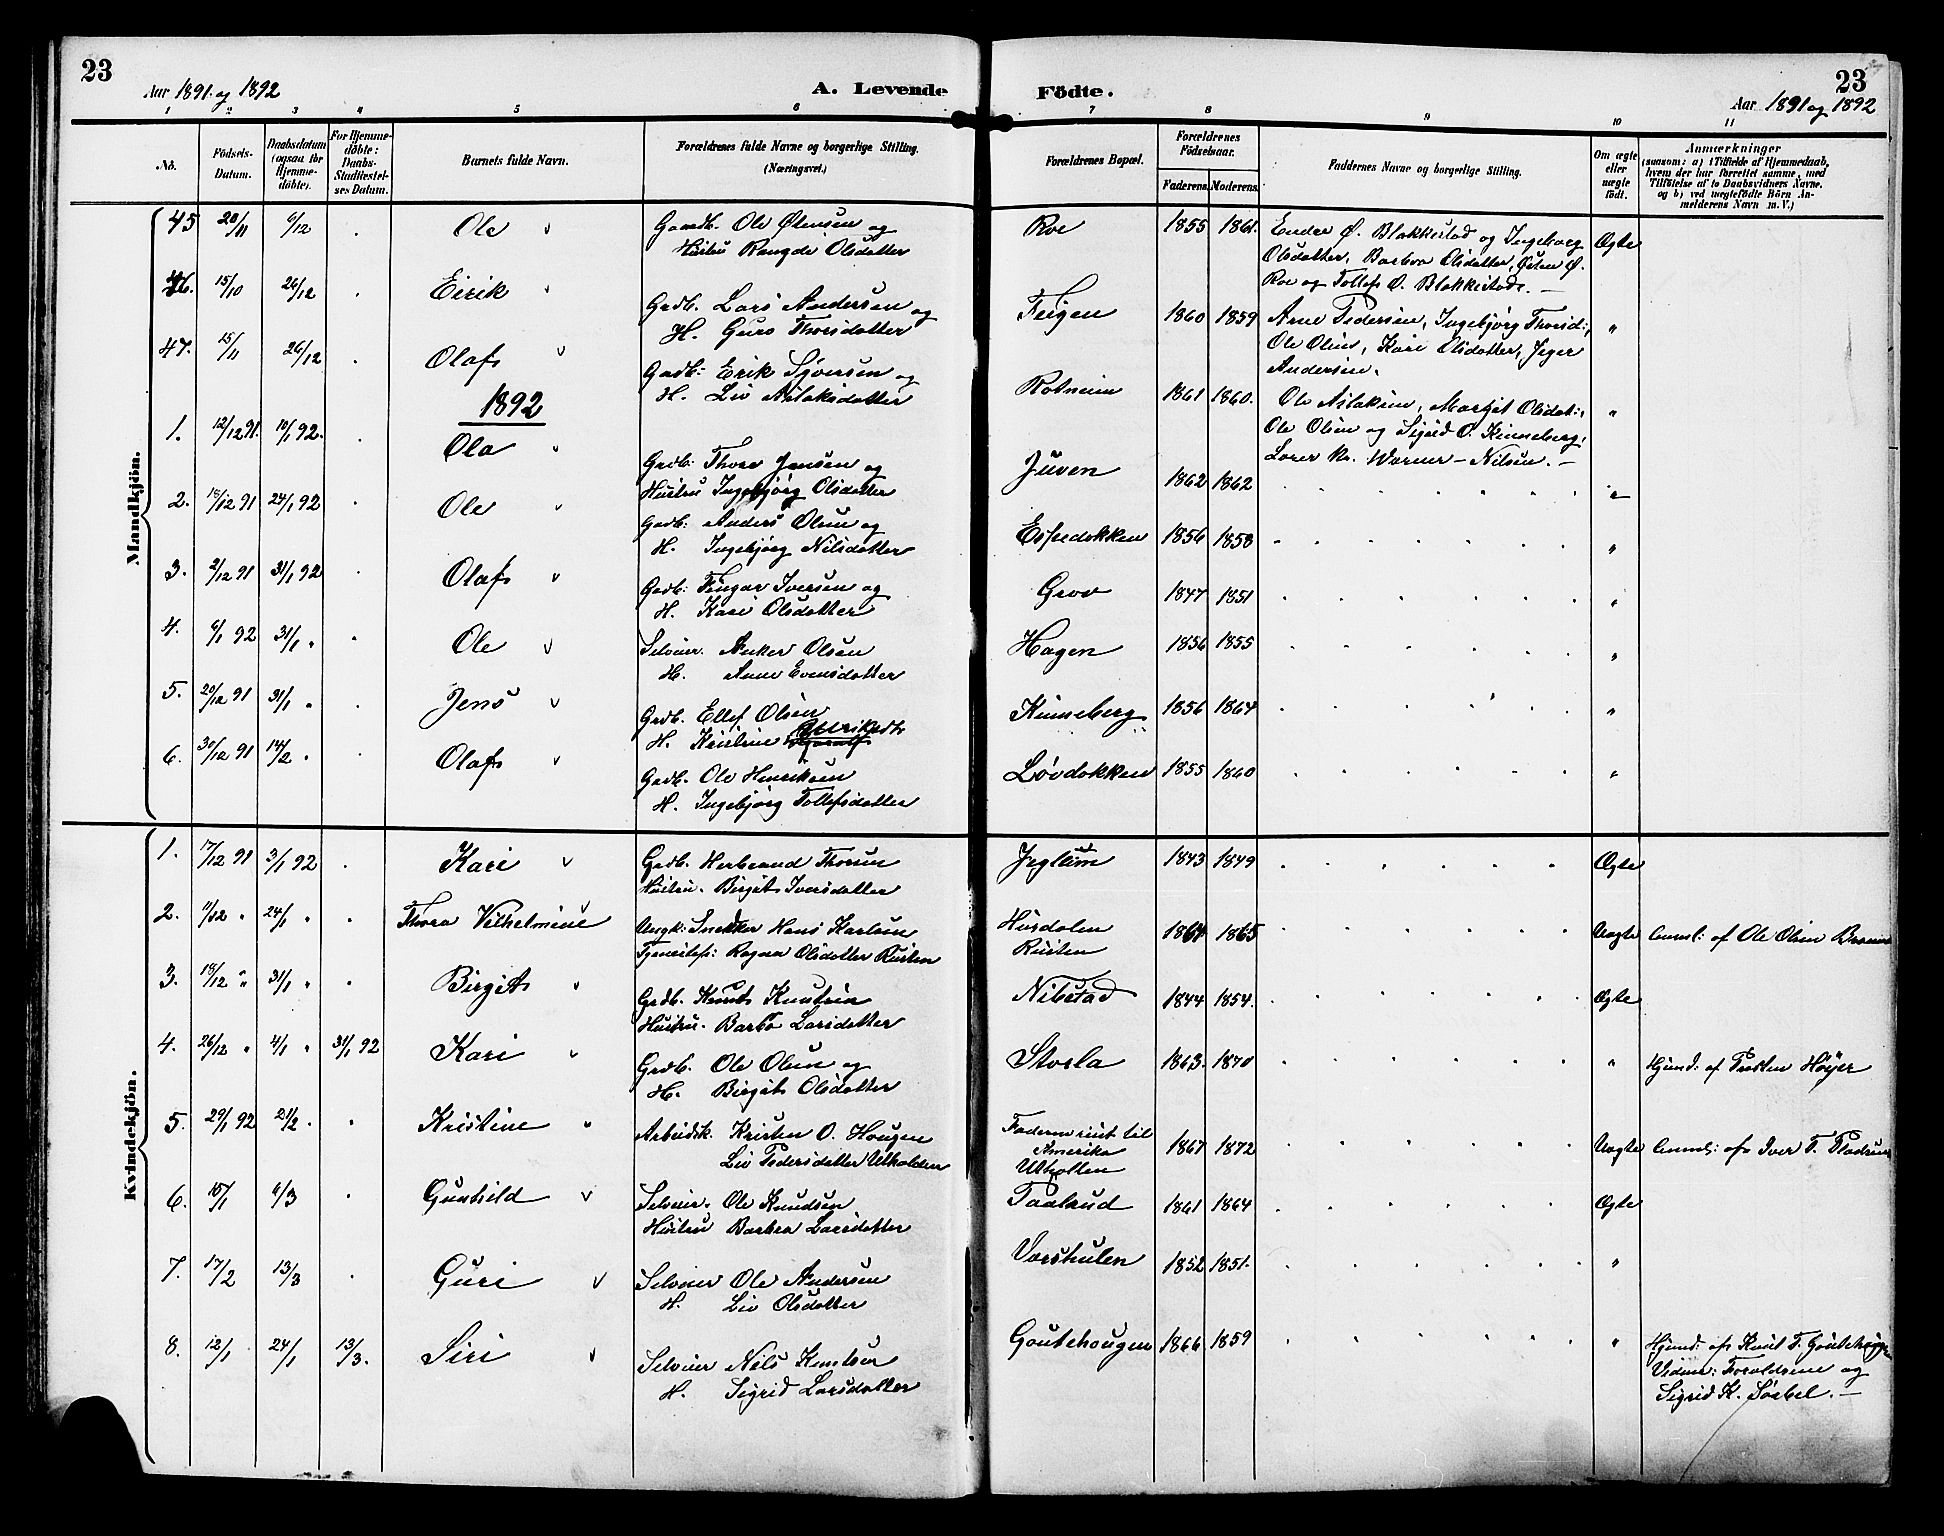 23
Aar 1891 og 1892
A. Levende
1 2 3 4 5 6
No.
Födsels-Datum.
Daabsdatum (ogsaa for Hjemmedöbte).
For Hjemmedöbte: Daabs-Stadfæstelses Datum.
Barnets fulde Navn.
Forældrenes fulde Navne og borgerlige Stilling.
(Næringsvei.)
Mandkjön.
45 20/11 6/12 Ole Gaardb. Ole Østensen og
Hustru Rangdi Olsdatter
46. 15/10 26/12 Eirik Grdb. Lars Andersen og
H. Guro Thorsdatter
47. 15/11 26/12 Olaf Grdb: Erik Syversen og
H. Liv Aslaksdatter
1892
1. 12/12 91. 10/1 92. Ola Grdb: Thore Jensen og
Hustru Ingebjørg Olsdatter
2. 18/12 91 24/1 92 Ole Grdb: Anders Olsen og
H. Ingebjørg Nilsdatter
3. 2/12 91 31/1 92 Olaf Grdb: Iversen og
H. Kari Olsdatter
4. 6/1 92 31/1 " Ole Selveier. Anker Olsen
H. Anne Evensdatter
5. 20/12 91 31/1 " Jens Grdb. Ellef Olsen
H. Kristine
6. 30/12 91 14/2 " Olaf Grdb. Ole Henriksen
H. Ingebjørg Tollefsdatter
Kvindekjön.
1. 17/12 91 3/1 92 Kari Grdb. Herbrand Thorsen
Hustru. Birgit Iversdatter
2. 11/12 " 24/1 " Thora Vilhelmine Ungk: Snekker Hans Karlsen
Tjenestepi: Ragna Olsdatter Rusten
3. 18/12 " 31/1 " Birgit Grdb. Knut Knutsen
Hustru. Barbo Larsdatter
4. 26/12 " 4/1 " 31/1 92 Kari Grdb. Ole Olsen og
H. Birgit Olsdatter
5. 29/1 92 21/2 " Kristine Arbeidsk. Kristen O. Hougen
Liv Pedersdatter Utholden
6. 15/1 6/3 Gunhild Selveier. Ole Knudsen
Hustru Barbra Larsdatter
7. 17/2 13/3 Guri Selveier Ole Andersen
H. Liv Olsdatter
8. 12/1 24/1 13/3. Siri Selveier Nils Knutsen
H. Sigrid Larsdatter
23
Födte.
Aar 1891 og 1892
7 8 9 10 11
Forældrenes Bopæl.
Forældrenes Födselsaar.
Faderens. Moderens.
Faddernes Navne og borgerlige Stilling.
Om ægte eller uægte födt.
Anmærkninger
(saasom: a) i Tilfælde af Hjemmedaab,
hvem der har forrettet samme, med
Tilföielse af to Daabsvidners Navne,
og b) ved uægtefödte Börn Anmelderens Navn m. V.)
Roe 1855 1861. Endre Ø. Blakkestad og Ingeborg
Olsdatter, Barbra Olsdatter, Østen Ø.
Roe og Tollef O. Blakkestad. — Ægte
Feigen 1860 1859 Arne Pedersen, Ingebjørg Thorsd:,
Ole Olsen, Kari Olsdatter,
Andersen. "
Rotneim 1861 1860. Ole Aslaksen, Margit Olsdat:,
Ole Olsen og Sigrid O. Kinneberg,
Lærer Kr. Warner-Nilsen. — "
Juven 1862 1862 "
Espedokken 1856 1858 "
Grov 1847 1851 "
Hagen 1856 1855 "
Kinneberg 1856 1864 "
Løvdokken 1855 1860 "
Jeglum 1843 1849 Ægte
Husdalen
Rusten 1864 1865 Uægte Anml: af Ole Olsen
Nibstad 1844 1854. Ægte
Storla 1863. 1870 " Hjmd: af Presten Høyer
Faderen reist til
Amerika
Utholten 1867 1872 Uægte Anml: af Iver T.
Taalrud 1861 1864 Ægte
1852 1851. "
Goutehougen 1866 1859 " Hjmd: af Knut T.
Vidner: Forældrene og
Sigrid K. Sørbel. —